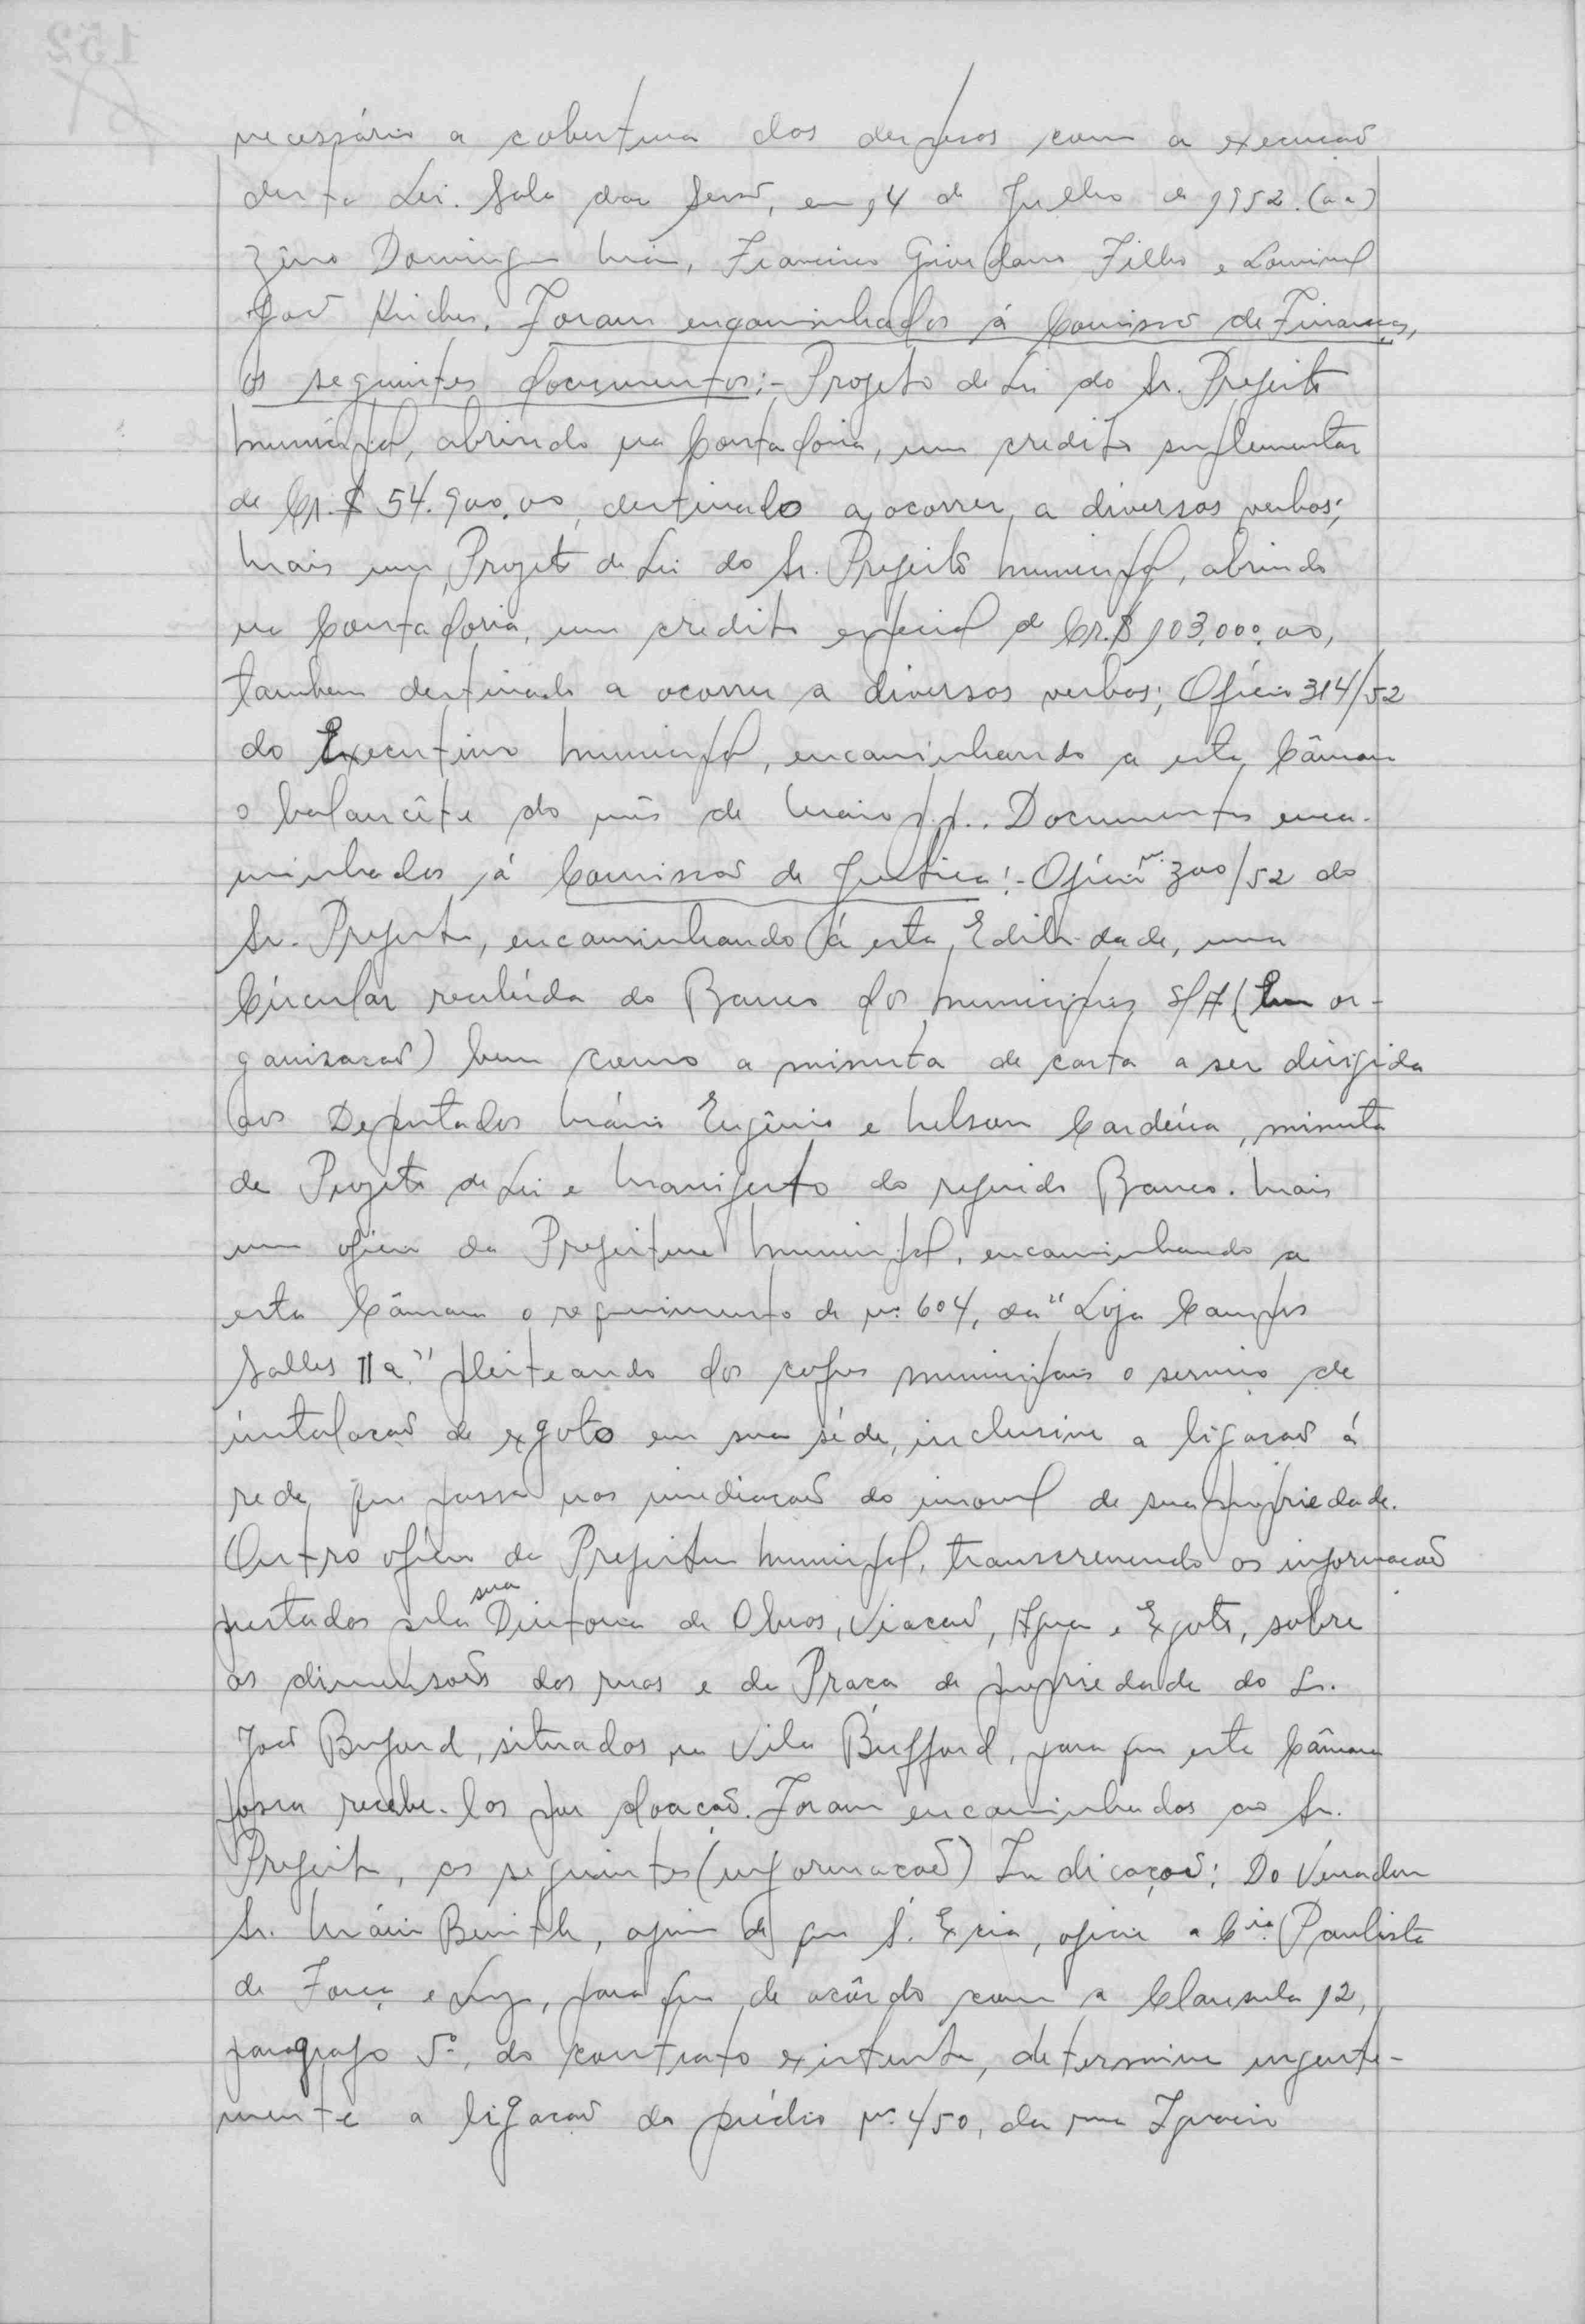 necessário a cobertura das despesas com a execução
desta Lei. Sala das Sessões, em 14 de Julho de 1952. (aa)
Zêno Domingues Maia, Francisco Giordano Filho e Lourival
José Foram encaminhados á Comissão de Finanças,
os seguintes documentos:- Projeto de Lei do Sr. Prefeito
Municipal, abrindo na Contadoria, um credito suplementar
de Cr.$ 54.900,00, destinado a ocorrer a diversas verbas;
Mais um Projeto de Lei do Sr. Prefeito Municipal, abrindo
na Contadoria, um credito especial de Cr.$ 103.000,00,
tambem destinado a ocorrer a diversas verbas; Ofício 314/52
do Executivo Municipal, encaminhando a esta Câmara
o balancête do mês de Maio p.p.. Documentos enca-
minhados á Comissão de Justiça:- Ofício nº 300/52 do
Sr. Prefeito, encaminhando á esta Edilidade, uma
Circular recebida do Banco dos Municípios S/A (Em or-
ganisação) bem como a minuta de carta a ser dirigida
aos Deputados Mário Eugênio e Nelson Carneiro, minuta
de Projeto de Lei e Manifesto do referido Banco. Mais
um oficio da Prefeitura Municipal, encaminhando a
esta Câmara o requerimento de nº 604, da "Loja Campos
Salles IIa" pleiteando dos cofres municipais o serviço de
instalação de exgoto em sua séde, inclusive a ligação á
rede que passa nas imediações do imovel de sua propriedade.
Outro oficio da Prefeitura Municipal, transcrevendo as informações
prestadas pela sua Diretoria de Obras, Viação, Agua e Exgoto, sobre
as dimensões das ruas e da Praça de propriedade do Sr.
José Bufford, situadas na Vila Bufford, para que esta Câmara
possa recebe-las por doação. Foram encaminhadas ao Sr.
Prefeito, as seguintes (informações) Indicações: Do Vereador
Sr. Mário afim de que S. Excia, oficie a Cia. Paulista
de Força e Luz, para que de acôrdo com a Clausula 12,
paragrafo 5º, do contrato existente, determine urgente-
mente a ligação do prédio nº 450, da rua Ignacio